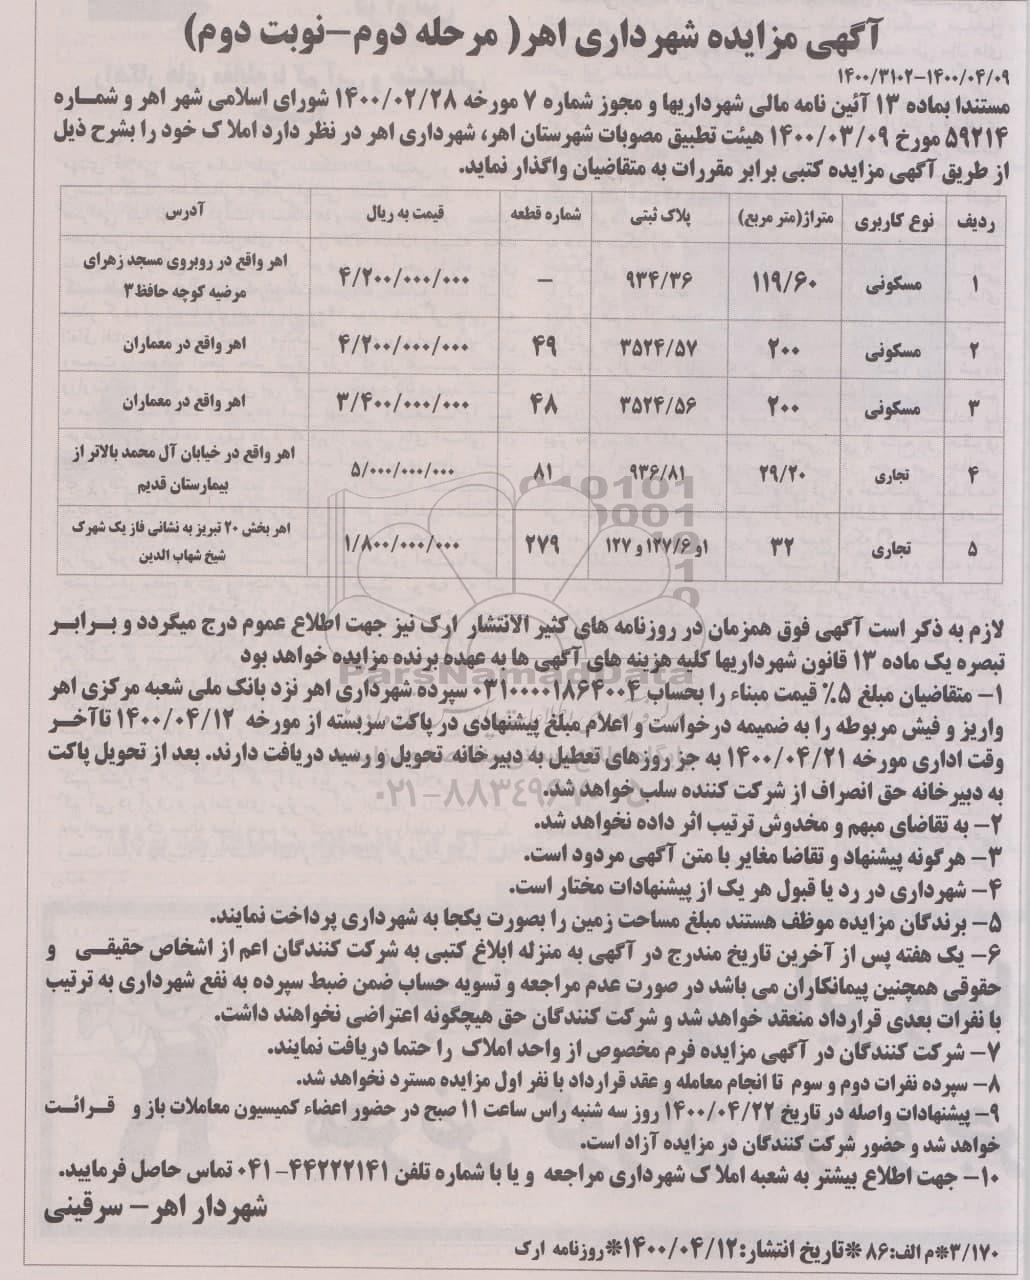 آگهی مزایده شهرداری اهر( مرحله دوم-نوبت دوم)
۱۴۰۰/۳۱۰۲-۱۴۰۰/۰۴/۰۹
مستندا بماده ۱۳ آئین نامه مالی شهرداریها و مجوز شماره ۷ مورخه ۱۴۰۰/۰۲/۲۸ شورای اسلامی شهر اهر و شماره
۵۹۲۱۴ مورخ ۱۴۰۰/۰۳/۰۹ هیئت تطبیق مصوبات شهرستان اهر، شهرداری اهر در نظر دارد املاک خود را بشرح ذیل
از طریق آگهی مزایده کتبی برابر مقررات به متقاضیان واگذار نماید.
ردیف نوع کاربری متراژ(متر مربع) پلاک ثبتی شماره قطعه قیمت به ریال آدرس
۱ مسکونی ۱۱۹/۶۰ ۹۳۴/۳۶ – ۴/۲۰۰/۰۰۰/۰۰۰ اهر واقع در روبروی مسجد زهرای
مرضیه کوچه حافظ۳
۲ مسکونی ۲۰۰ ۳۵۲۴/۵۷ ۴۹ ۴/۲۰۰/۰۰۰/۰۰۰ اهر واقع در معماران
۳ مسکونی ۲۰۰ ۳۵۲۴/۵۶ ۴۸ ۳/۴۰۰/۰۰۰/۰۰۰ اهر واقع در معماران
۴ تجاری ۲۹/۲۰ ۹۳۶/۸۱ ۸۱ ۵/۰۰۰/۰۰۰/۰۰۰ اهر واقع در خیابان آل محمد بالاتر از
بیمارستان قدیم
۵ تجاری ۳۲ ۱و ۱۲۷/۶ و ۱۲۷ ۲۷۹ ۱/۸۰۰/۰۰۰/۰۰۰ اهر بخش ۲۰ تبریز به نشانی فاز یک شهرک
شیخ شهاب الدین
لازم به ذکر است آگهی فوق همزمان در روزنامه های کثیر الانتشار ارک نیز جهت اطلاع عموم درج میگردد و برابر
تبصره یک ماده ۱۳ قانون شهرداریها کلیه هزینه های آگهی ها به عهده برنده مزایده خواهد بود
ParsNamadData
۱- متقاضیان مبلغ ۵٪ قیمت مبناء را بحساب ۰۳۱۰۰۰۰۱۸۶۴۰۰۴ سپرده شهرداری اهر نزد بانک ملی شعبه مرکزی اهر
واریز و فیش مربوطه را به ضمیمه درخواست و اعلام مبلغ پیشنهادی در پاکت سربسته از مورخه ۱۴۰۰/۰۴/۱۲ تاآخر
وقت اداری مورخه ۱۴۰۰/۰۴/۲۱ به جز روزهای تعطیل به دبیرخانه تحویل و رسید دریافت دارند. بعد از تحویل پاکت
به دبیرخانه حق انصراف از شرکت کننده سلب خواهد شد.
۲- به تقاضای مبهم و مخدوش ترتیب اثر داده نخواهد شد.
۳- هرگونه پیشنهاد و تقاضا مغایر با متن آگهی مردود است.
۴- شهرداری در رد یا قبول هر یک از پیشنهادات مختار است.
۵- برندگان مزایده موظف هستند مبلغ مساحت زمین را بصورت یکجا به شهرداری پرداخت نمایند.
۶- یک هفته پس از آخرین تاریخ مندرج در آگهی به منزله ابلاغ کتبی به شرکت کنندگان اعم از اشخاص حقیقی و
حقوقی همچنین پیمانکاران می باشد در صورت عدم مراجعه و تسویه حساب ضمن ضبط سپرده به نفع شهرداری به ترتیب
با نفرات بعدی قرارداد منعقد خواهد شد و شرکت کنندگان حق هیچگونه اعتراضی نخواهند داشت.
۷- شرکت کنندگان در آگهی مزایده فرم مخصوص از واحد املاک را حتما دریافت نمایند.
۸- سپرده نفرات دوم و سوم تا انجام معامله و عقد قرارداد با نفر اول مزایده مسترد نخواهد شد.
۹- پیشنهادات واصله در تاریخ ۱۴۰۰/۰۴/۲۲ روز سه شنبه راس ساعت ۱۱ صبح در حضور اعضاء کمیسیون معاملات باز و قرائت
خواهد شد و حضور شرکت کنندگان در مزایده آزاد است.
۱۰- جهت اطلاع بیشتر به شعبه املاک شهرداری مراجعه و یا با شماره تلفن ۴۴۲۲۲۱۴۱-۰۴۱ تماس حاصل فرمایید.
شهردار اهر- سرقینی
۳/۱۷۰*م الف:۸۶ *تاریخ انتشار:۱۴۰۰/۰۴/۱۲*روزنامه ارک